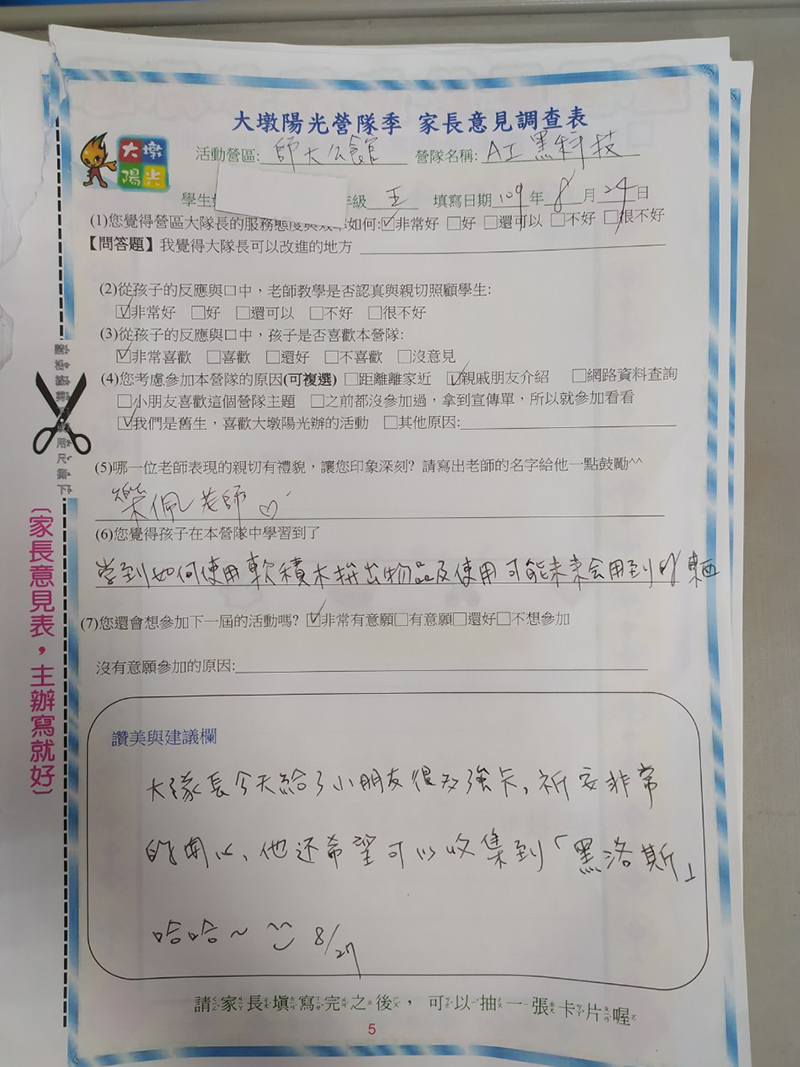 大墩陽光營隊季 家長意見調查表
大墩
陽光
活動營區: 師大公館 營隊名稱: AI黑科技
學生 年級 五 填寫日期 109 年 8 月 24 日
(1)您覺得營區大隊長的服務態度與效率如何:☑非常好 □好 □還可以 □不好 □很不好
【問答題】我覺得大隊長可以改進的地方
(2)從孩子的反應與口中，老師教學是否認真與親切照顧學生:
☑非常好 □好 □還可以 □不好 □很不好
(3)從孩子的反應與口中，孩子是否喜歡本營隊:
☑非常喜歡 □喜歡 □還好 □不喜歡 □沒意見
(4)您考慮參加本營隊的原因(可複選) □距離離家近 ☑親戚朋友介紹 □網路資料查詢
□小朋友喜歡這個營隊主題 □之前都沒參加過，拿到宣傳單，所以就參加看看
☑我們是舊生，喜歡大墩陽光辦的活動 □其他原因:
(5)哪一位老師表現的親切有禮貌，讓您印象深刻? 請寫出老師的名字給他一點鼓勵^^
樂佩老師♡
(6)您覺得孩子在本營隊中學習到了
學到如何使用軟積木拚出物品及使用可能未來会用到的東西
(7)您還會想參加下一屆的活動嗎? ☑非常有意願□有意願□還好□不想參加
沒有意願參加的原因:
讚美與建議欄
大隊長今天給了小朋友很多強卡，祈安非常
的開心、他还希望可以收集到「黑洛斯」
哈哈~ 8/27
請家長填寫完之後，可以抽一張卡片喔
5
〔家長意見表，主辦寫就好〕